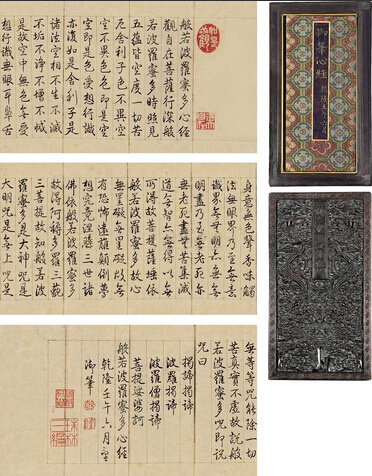 般若波羅蜜多心經
觀自在菩薩行深般
若波羅蜜多時照見
五蘊皆空度一切苦
厄舍利子色不異空
空不異色色即是空
空即是色受想行識
亦復如是舍利子是
諸法空相不生不滅
不垢不淨不增不減
是故空中無色無受
想行識無眼耳鼻舌
身意無色聲香味觸
法無眼界乃至無意
識界無無明亦無無
明盡乃至無老死亦
無老死盡無苦集滅
道無智亦無得以無
所得故菩提薩埵依
般若波羅蜜多故心
無罣礙無罣礙故無
有恐怖遠離顛倒夢
想究竟涅槃三世諸
佛依般若波羅蜜多
故得阿耨多羅三藐
三菩提故知般若波
羅蜜多是大神咒是
大明咒是無上咒是
無等等咒能除一切
苦真實不虛故說般
若波羅蜜多咒即說
咒曰
揭諦揭諦
波羅揭諦
波羅僧揭諦
菩提娑婆訶
般若波羅蜜多心經
乾隆壬午六月望
御筆
御筆心經